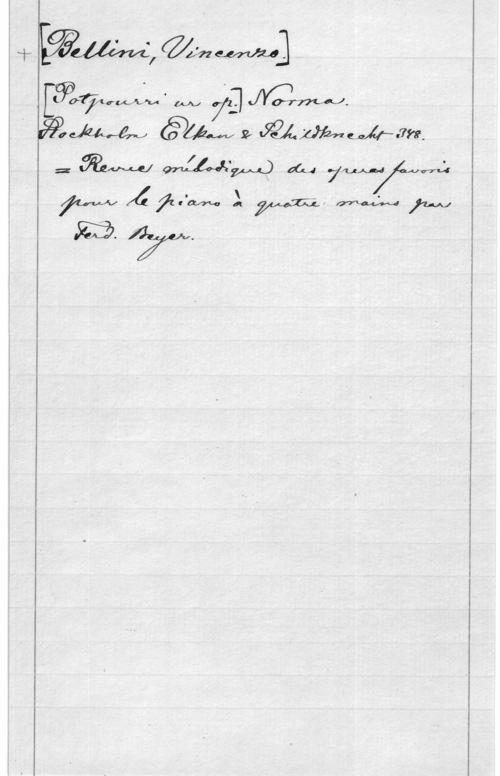 + [Bellini, Vincenzo.]
[Potpourri ur op.] Norma.
Stockholm Elkan & Schildknecht 348.
= Revue mélodique des operas favoris
pour le piano à quatre mains par
Ferd. Beyer.